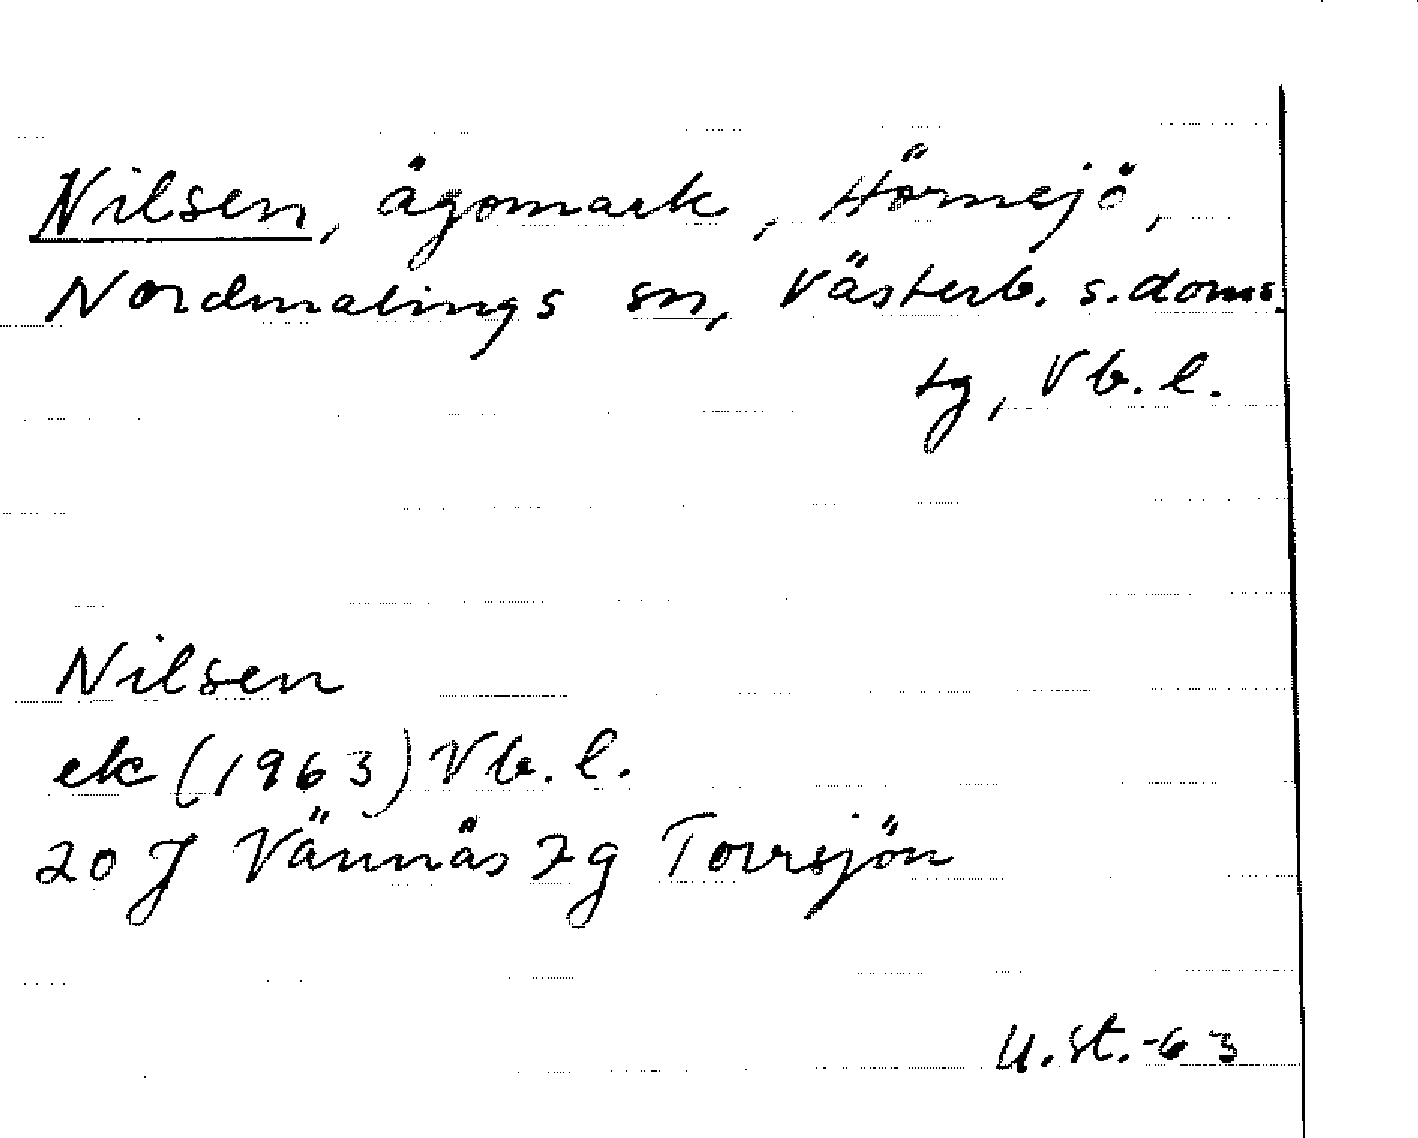 Nilsen, ägomark, Hörnsjö,
Nordmalings sn, Västerb. s. doms.
tg, Vb. l.
Nilsen
ek (1963) Vb. l.
20 J Vännäs 2g Torrsjön
U. St. -63